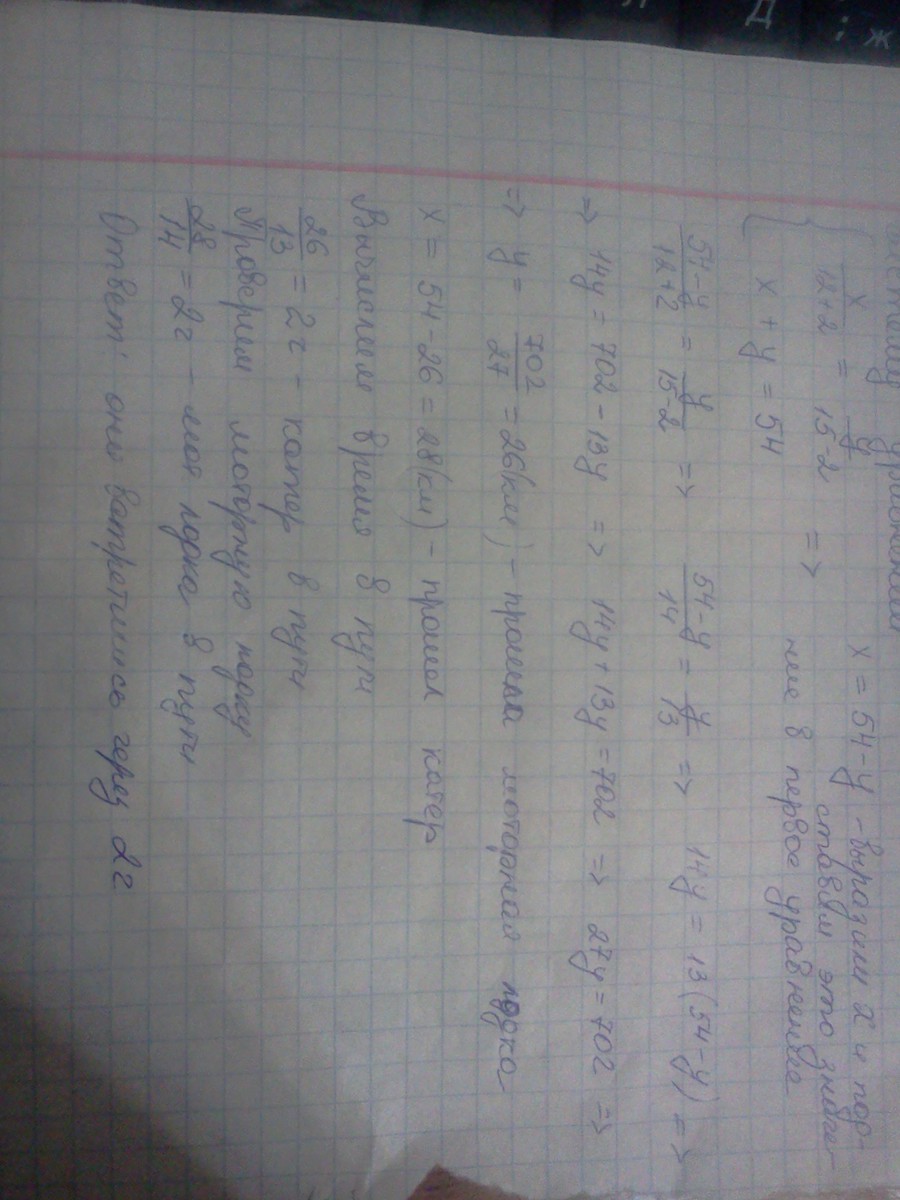 систему уравнений
{ x/(12+2) = y/(15-2) => x = 54-y - выразим x и под-
{ x + y = 54 ставим это значе-
ние в первое уравнение
(54-y)/(12+2) = y/(15-2) => (54-y)/14 = y/13 => 14y = 13(54-y) =>
=> 14y = 702 - 13y => 14y + 13y = 702 => 27y = 702 =>
=> y = 702/27 = 26(км) - прошла моторная лодка
x = 54-26 = 28(км) - прошел катер
Вычислим время в пути
26/13 = 2ч - катер в пути
Проверим моторную лодку
28/14 = 2ч - мот лодка в пути
Ответ: они встретились через 2ч
Д
: ж